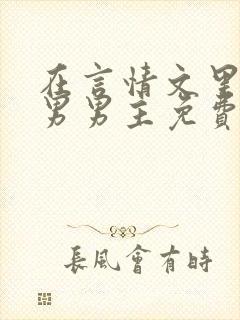 在言情文里
男男主免費
長風會有時